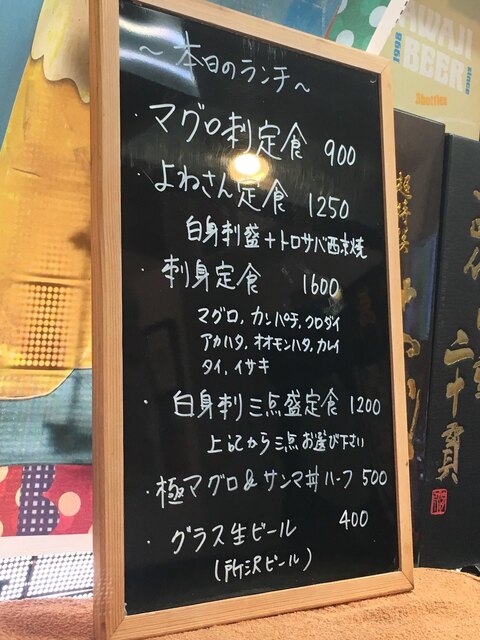 ～本日のランチ～
・マグロ刺定食 900
・よねさん定食 1250
白身刺盛＋トロサバ西京焼
・刺身定食 1600
マグロ，カンパチ，クロダイ
アカハタ，オオモンハタ，カレイ
タイ，イサキ
・白身刺三点盛定食 1200
上記から三点お選び下さい
・極マグロ&サンマ丼ハーフ 500
・グラス生ビール 400
(所沢ビール)
AWAJI
BEER
1998
since
Shottles
超特撰
二十貫